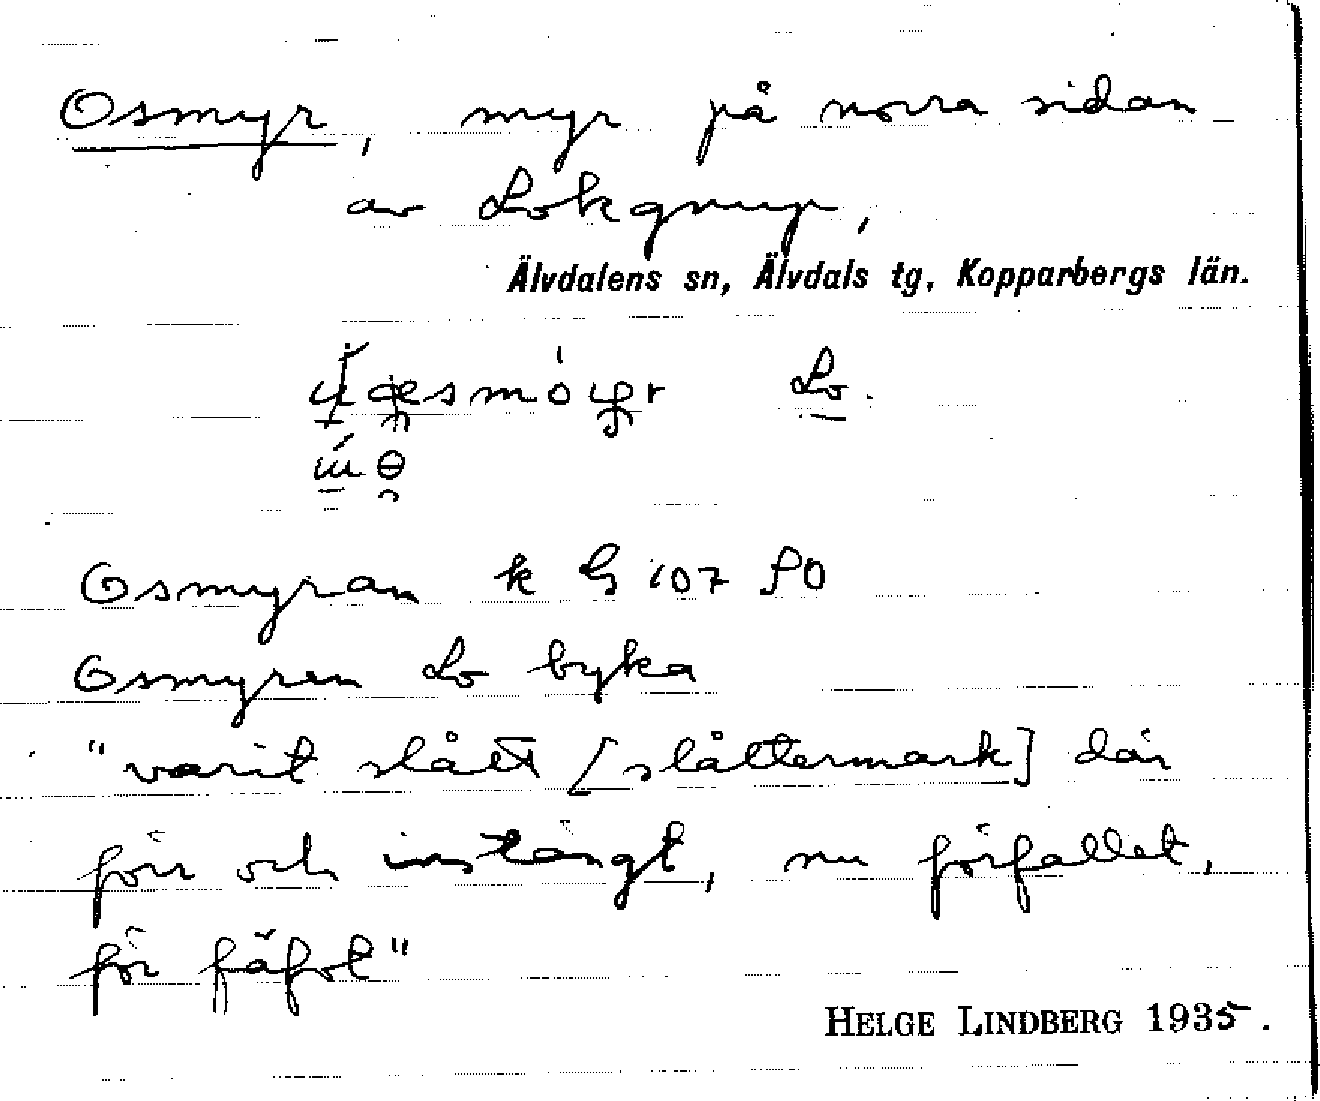 Osmyr, myr på norra sidan
av Lokgnup,
Älvdalens sn, Älvdals tg, Kopparbergs län.
Lo.
Osmyran k G 107 SO
Osmyren Lo byka
"varit slått [slåttermark] där
förr och instängt, nu förfallet,
för fäfot"
HELGE LINDBERG 1935.